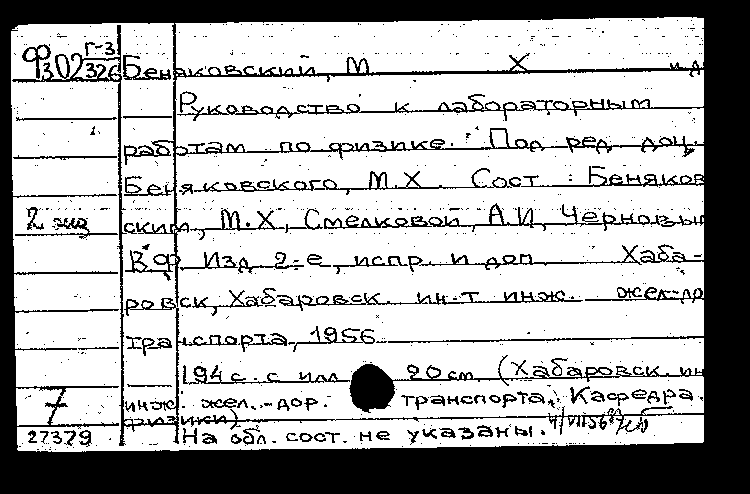 Ф302 Г-3/326 Беняковский, М Х и д
Руководство к лабораторным
работам по физике. Под ред доц.
Беняковского, М.Х. Сост : Беняков
2 экз ским, М.Х., Смелковой, А.И, Черновым
В.Ф Изд 2-е, испр. и доп Хаба-
ровск, Хабаровск. ин-т инж. жел-до
транспорта, 1956
194 с. с илл 20 см. (Хабаровск. ин
7 инж. жел.-дор. транспорта. Кафедра
физики)
27379 На обл. сост. не указаны.